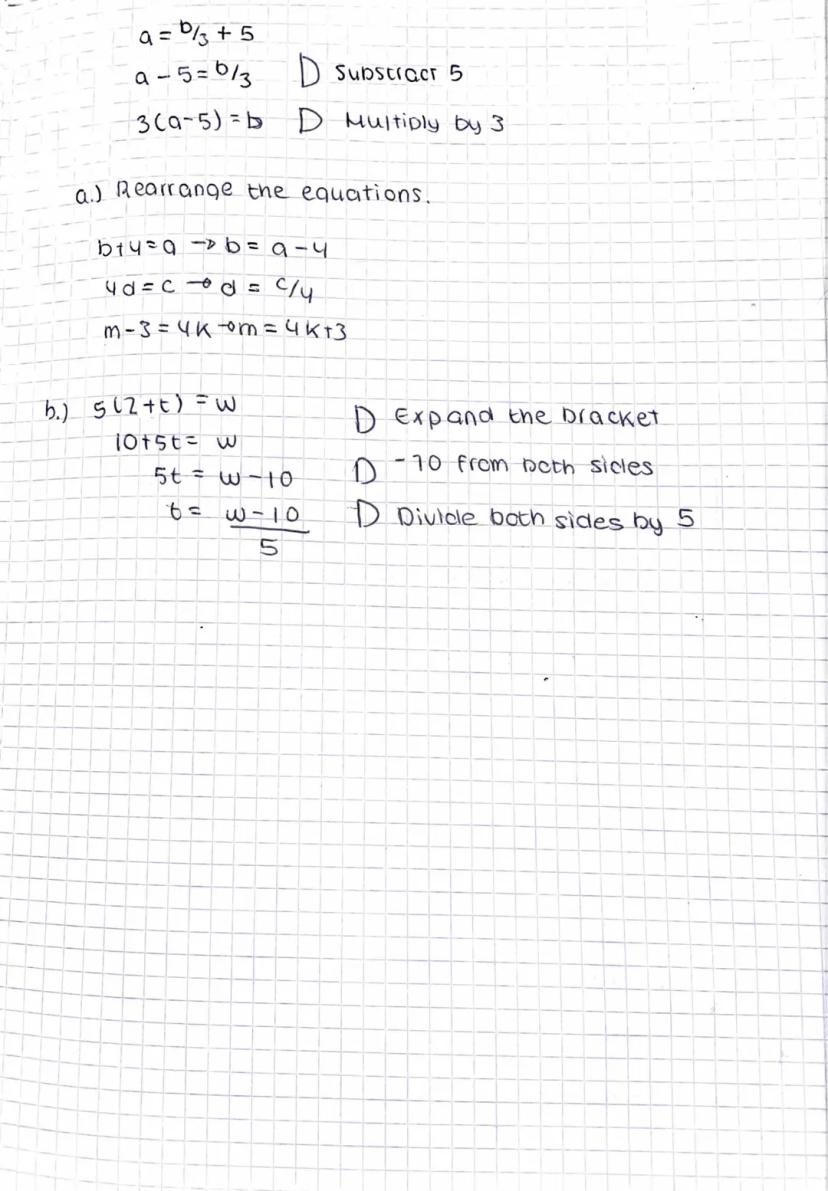 a = b/3 + 5
a - 5 = b/3 Substract 5
3(a-5) = b Multiply by 3
a.) Rearrange the equations.
b+4=a → b = a-4
4d=c → d = c/4
m-3=4k → m = 4k+3
b.) 5(2+t) = w Expand the bracket
10+5t = w
5t = w-10 -10 from both sides
t = w-10 Divide both sides by 5
5